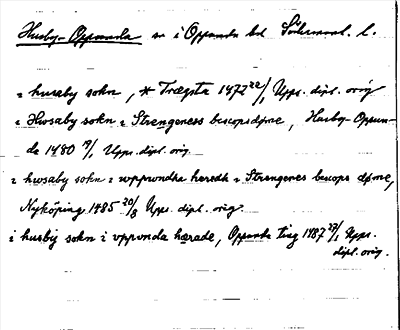 Husby-Oppunda sn i Oppunda hd Södermanl. l.
i husaby sokn, * Træysta 1472 22/1 Upps. dipl. orig
i Hwsaby sokn i Strengenees biscopsdøme, Husby-Oppun-
da 1480 19/1 Upps. dipl. orig.
i hwsaby sokn i wppwndha hæredh i Strengenes biscops døme,
Nyköping 1485 20/8 Upps. dipl. orig.
i husbij sokn i vppunda hærade, Oppunda ting 1487 27/1 Upps.
dipl. orig.